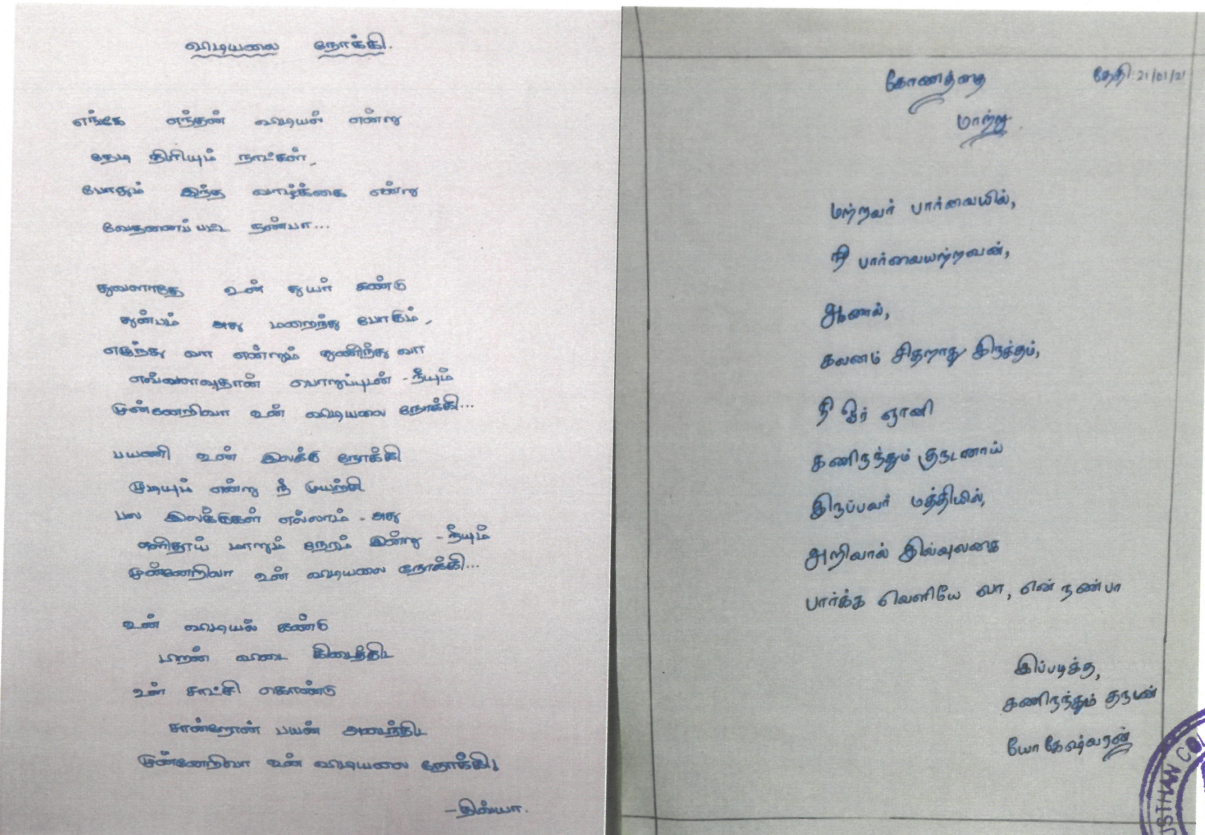 விடியலை நோக்கி.
எங்கே எந்தன் விடியல் என்று
தேடி திரியும் நாட்கள்,
போதும் இந்த வாழ்க்கை என்று
வேதனைப்பட்ட நண்பா...
துவளாதே உன் துயர் கண்டு
துன்பம் அது மறைந்து போகும்,
எழுந்து வா என்றும் துணிந்து வா
எவ்வளவுதான் வெறுப்புடன் - நீயும்
முன்னேறிவா உன் விடியலை நோக்கி...
பயணி உன் இலக்கு நோக்கி
முடியும் என்று நீ முயற்சி
பல இலக்குகள் எல்லாம் - அது
எளிதாய் மாறும் நேரம் இன்று - நீயும்
முன்னேறிவா உன் விடியலை நோக்கி...
உன் விடியல் கண்டு
பலன் விடை கிடைத்திட
உன் சாட்சி கொண்டு
சான்றோன் பயன் அடைந்திட
முன்னேறிவா உன் விடியலை நோக்கி!
- திவ்யா.
கோணத்தை
தேதி: 21/01/21
மாற்று
மற்றவர் பார்வையில்,
நீ பார்வையற்றவன்,
ஆனால்,
கவனம் சிதறாது இருத்தும்,
நீ ஓர் ஞானி
கணிநந்தும் குருடனாய்
இருப்பவர் மத்தியில்,
அறிவால் இவ்வுலகை
பார்க்க வெளியே வா, என் நண்பா
இப்படிக்கு,
கணிநந்தும் குருடன்
யோகேஷ்வரன்
USTHAN CO